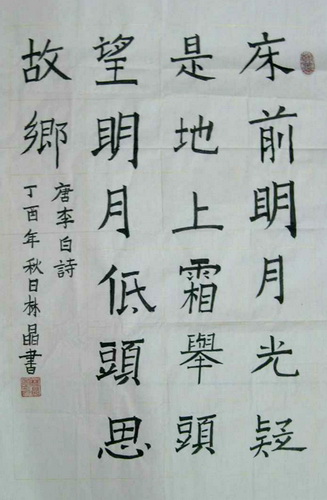 床前明月光疑
是地上霜舉頭
望明月低頭思
故鄉
唐李白詩
丁酉年秋日林晶書